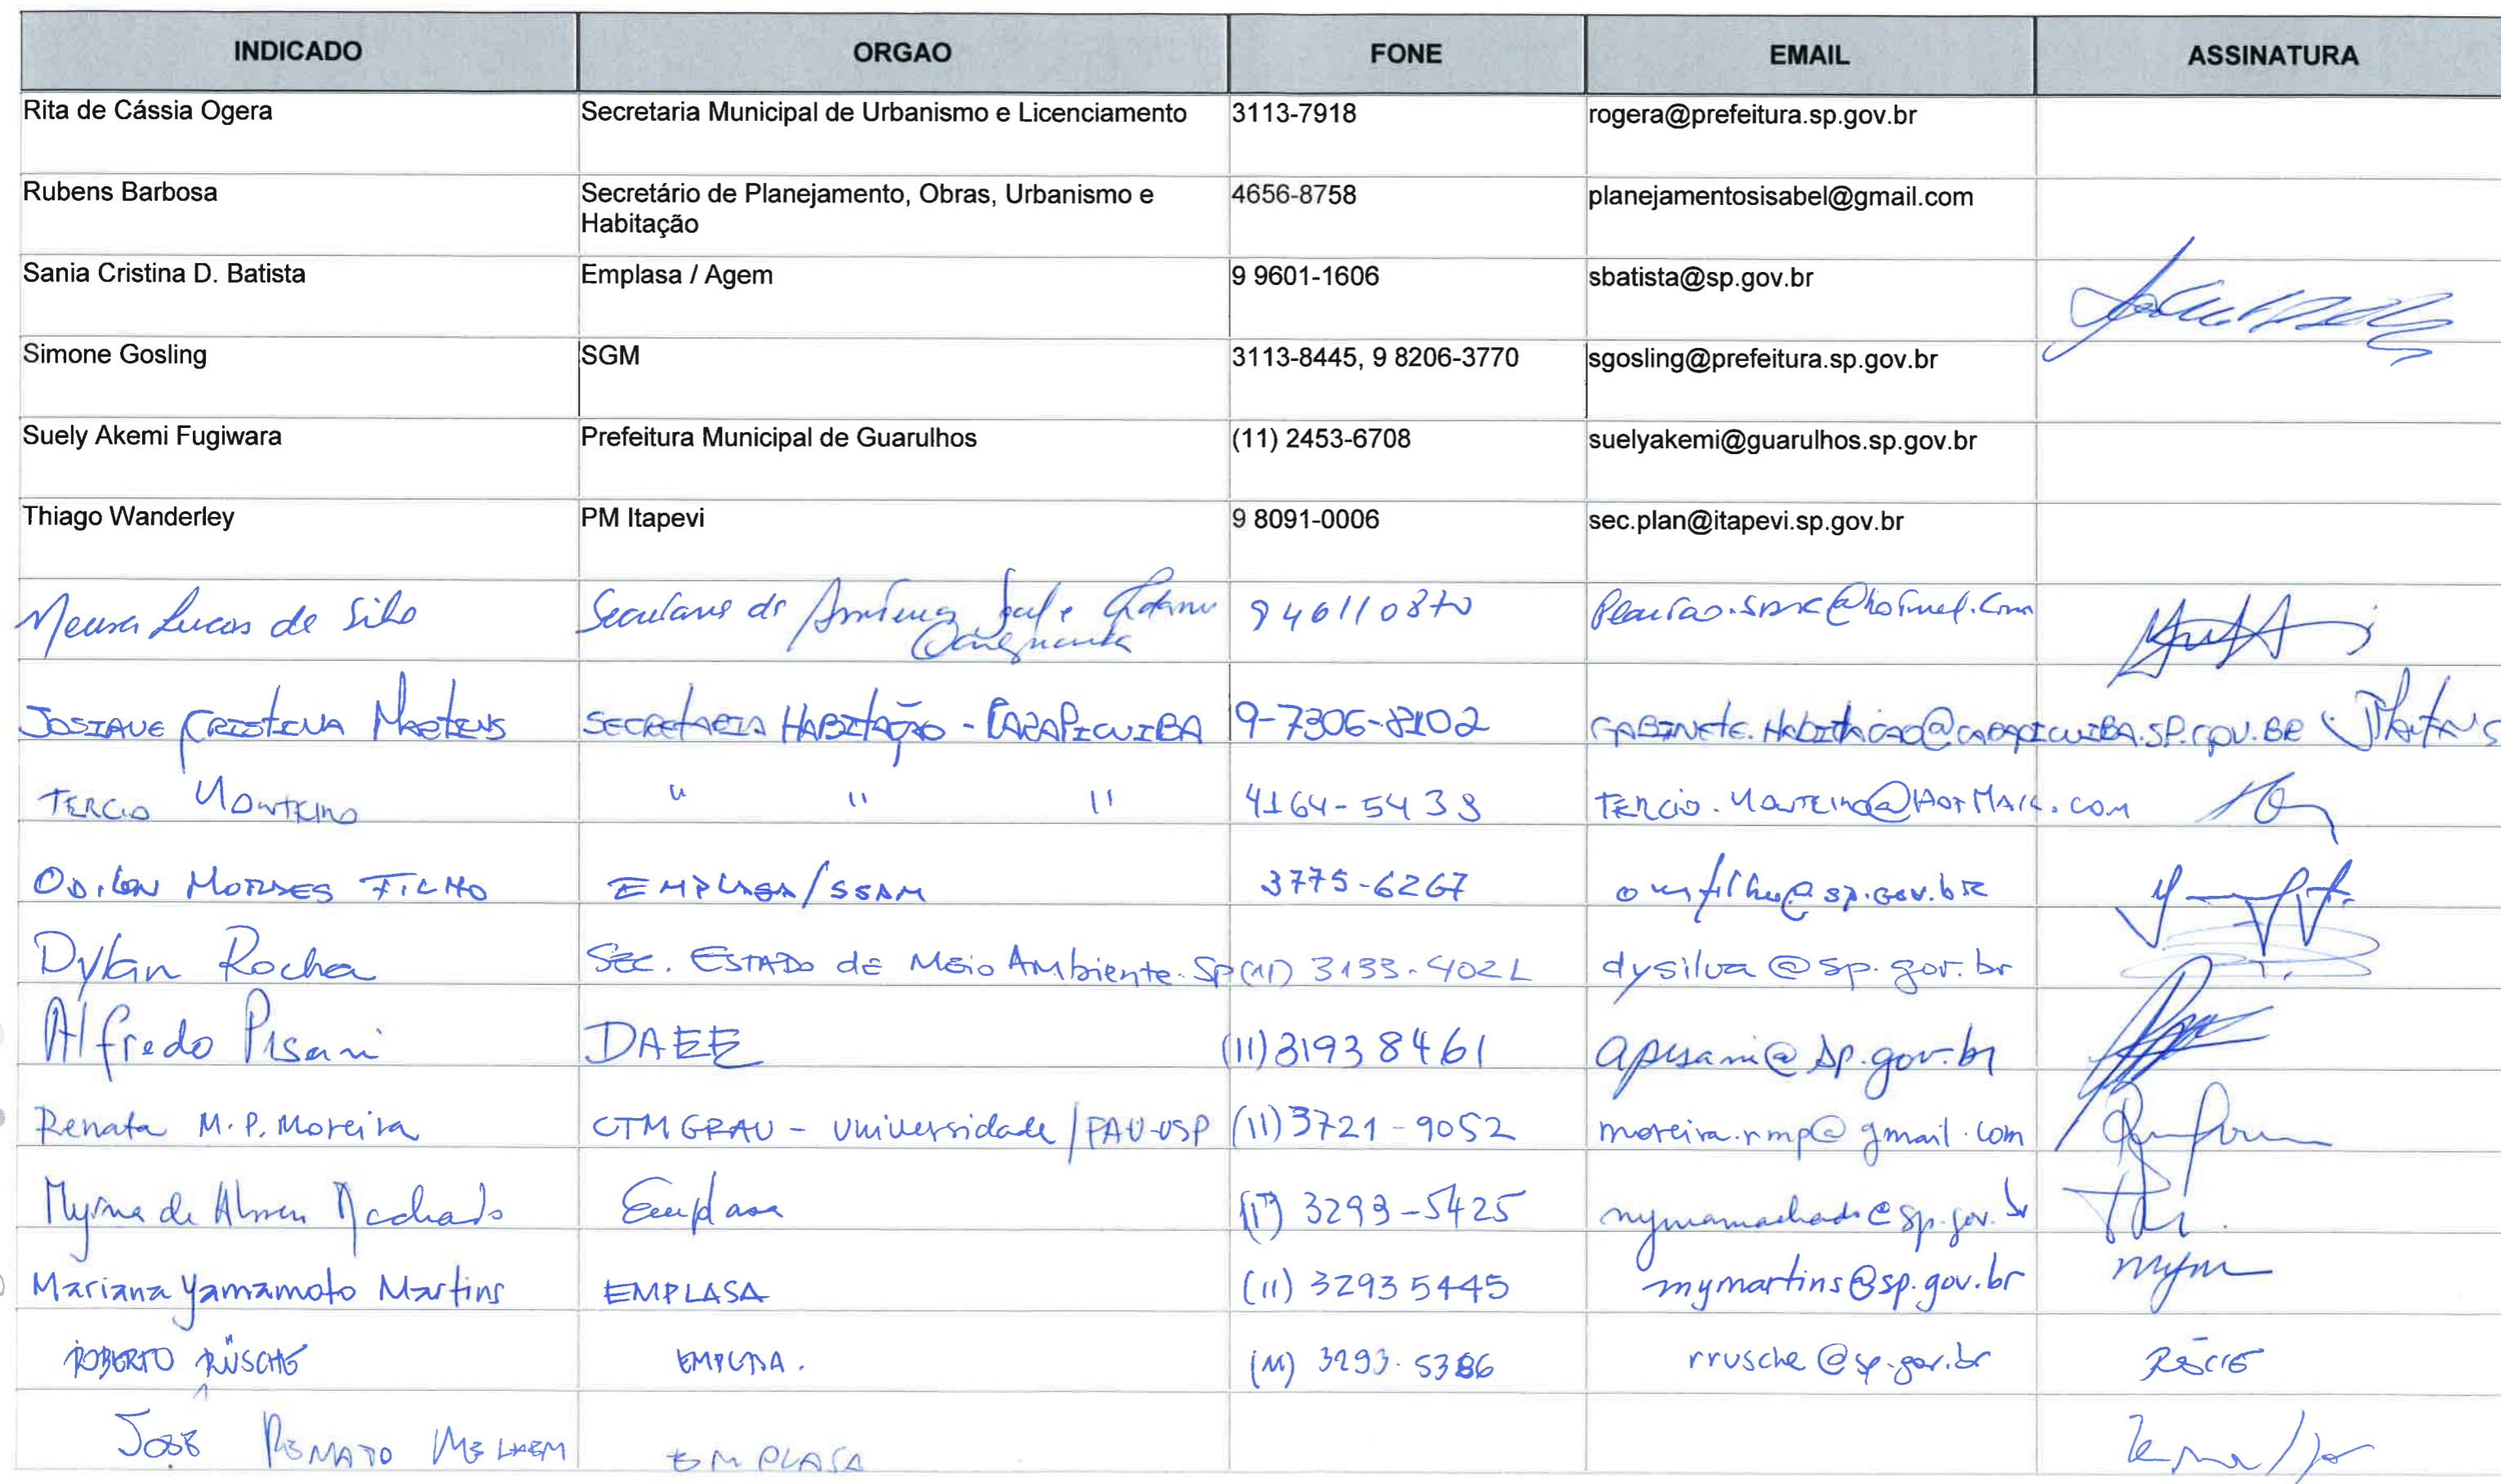 INDICADO ORGAO FONE EMAIL ASSINATURA
Rita de Cássia Ogera Secretaria Municipal de Urbanismo e Licenciamento 3113-7918 rogera@prefeitura.sp.gov.br
Rubens Barbosa Secretário de Planejamento, Obras, Urbanismo e 4656-8758 planejamentosisabel@gmail.com
Habitação
Sania Cristina D. Batista Emplasa / Agem 9 9601-1606 sbatista@sp.gov.br
Simone Gosling SGM 3113-8445, 9 8206-3770 sgosling@prefeitura.sp.gov.br
Suely Akemi Fugiwara Prefeitura Municipal de Guarulhos (11) 2453-6708 suelyakemi@guarulhos.sp.gov.br
Thiago Wanderley PM Itapevi 9 8091-0006 sec.plan@itapevi.sp.gov.br
Lucas de 946110870
JOSIANE CRISTINA MARTINS SECRETARIA HABITAÇÃO - CARAPICUIBA 9-7306-8102 GABINETE.HABITACAO@CARAPICUIBA.SP.GOV.BR
TERCIO MONTEIRO " " " TERCIO.MONTEIRO@HOTMAIL.COM
ODILON MORAES FILHO EMPLASA/SSAM 3775-6267 omfilho@sp.gov.br
Dylan Rocha SEC. ESTADO dE MEio AMbiente-SP dysilva@sp.gov.br
Alfredo Pisani DAEE (11) 3193 8461 apisani@sp.gov.br
Renata M. P. Moreira CTM GRAU - Universidade/FAU-USP (11) 3721-9052 moreira.rmp@gmail.com
Machado Emplasa (11) 3293-5425
Mariana Yamamoto Martins EMPLASA (11) 3293 5445 mymartins@sp.gov.br mym
ROBERTO RÜSCHE EMPLASA. (11) 3293-5386 rrusche@sp.gov.br
JOSÉ RENATO MELHEM EMPLASA